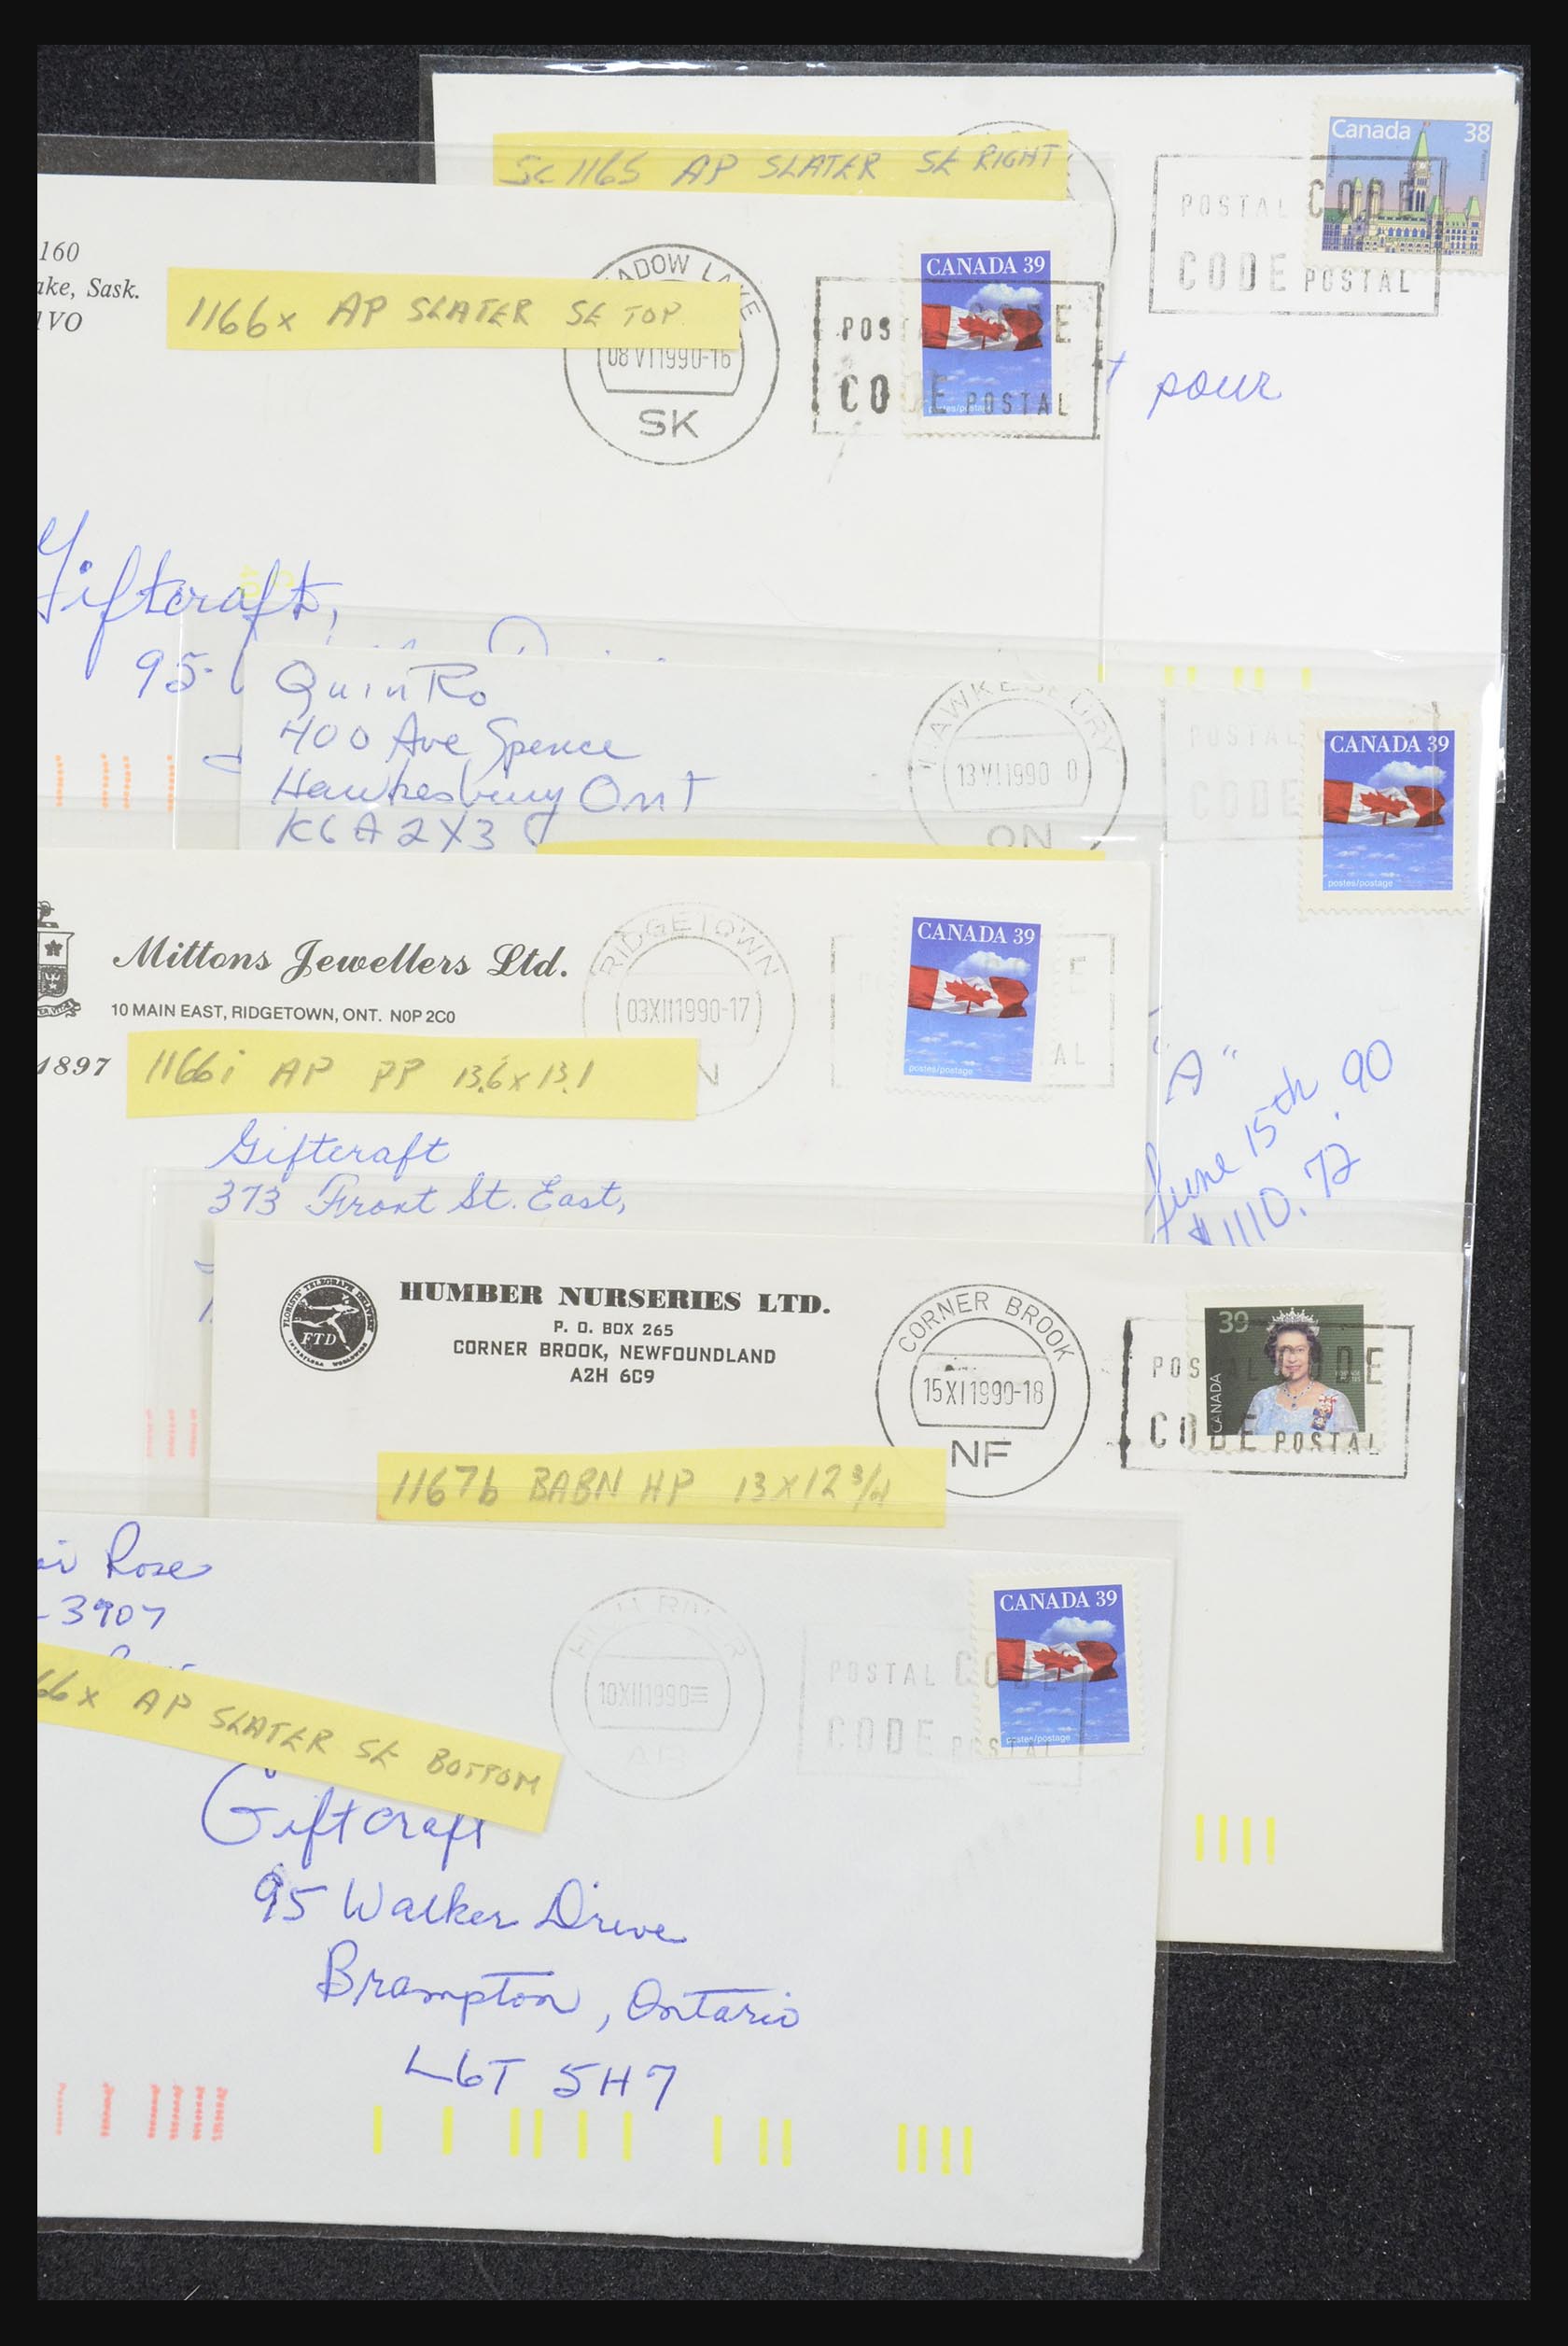 SC 1165 AP SLATER SE RIGHT
Canada 38
POSTAL CODE
CODE POSTAL
pour
160
ake, Sask.
1V0
1166x AP SLATER SE TOP
ADOW LAKE
08 VI 1990-16
SK
CANADA 39
POS E
CODE POSTAL
Giftcraft,
95
QuinRo
400 Ave Spence
Hawkesbury Ont
K6A 2X3
HAWKESBURY
13 VI 1990 0
ON
POSTAL
CODE
CANADA 39
postes/postage
Mittons Jewellers Ltd.
10 MAIN EAST, RIDGETOWN, ONT. N0P 2C0
1897
1166i AP PP 13.6x13.1
RIDGETOWN
03XII1990-17
N
CANADA 39
postes/postage
E
AL
Giftcraft
373 Front St. East,
"A"
June 15th. 90
$1110.72
FLORISTS' TELEGRAPH DELIVERY
FTD
INTERFLORA WORLDWIDE
HUMBER NURSERIES LTD.
P. O. BOX 265
CORNER BROOK, NEWFOUNDLAND
A2H 6C9
CORNER BROOK
15XI1990-18
NF
39
CANADA
POSTAL CODE
CODE POSTAL
1167b BABN HP 13x12 3/4
Rose
-3907
66x AP SLATER SE BOTTOM
10XII1990
AB
POSTAL CODE
CODE POSTAL
CANADA 39
postes/postage
Giftcraft
95 Walker Drive
Brampton, Ontario
L6T 5H7